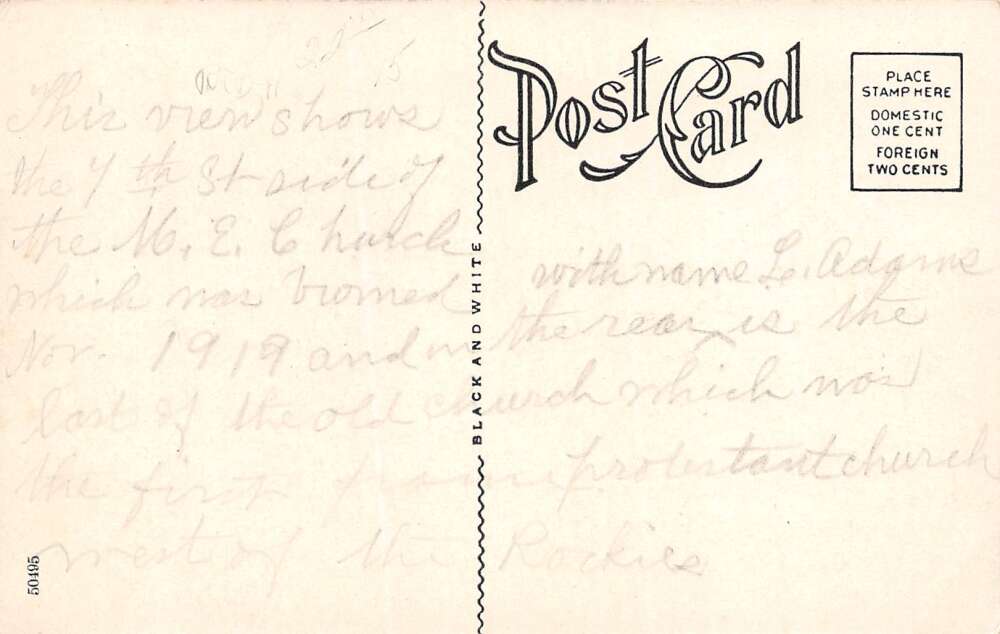 This view shows
the 7th St side of
the M. E. Church
which was burned
Nov. 1919 and in the rear is the
last of the old church which was
the first frame protestant church
west of the Rockies
with name L. Adams
22
15
Post Card
PLACE
STAMP HERE
DOMESTIC
ONE CENT
FOREIGN
TWO CENTS
BLACK AND WHITE
50495